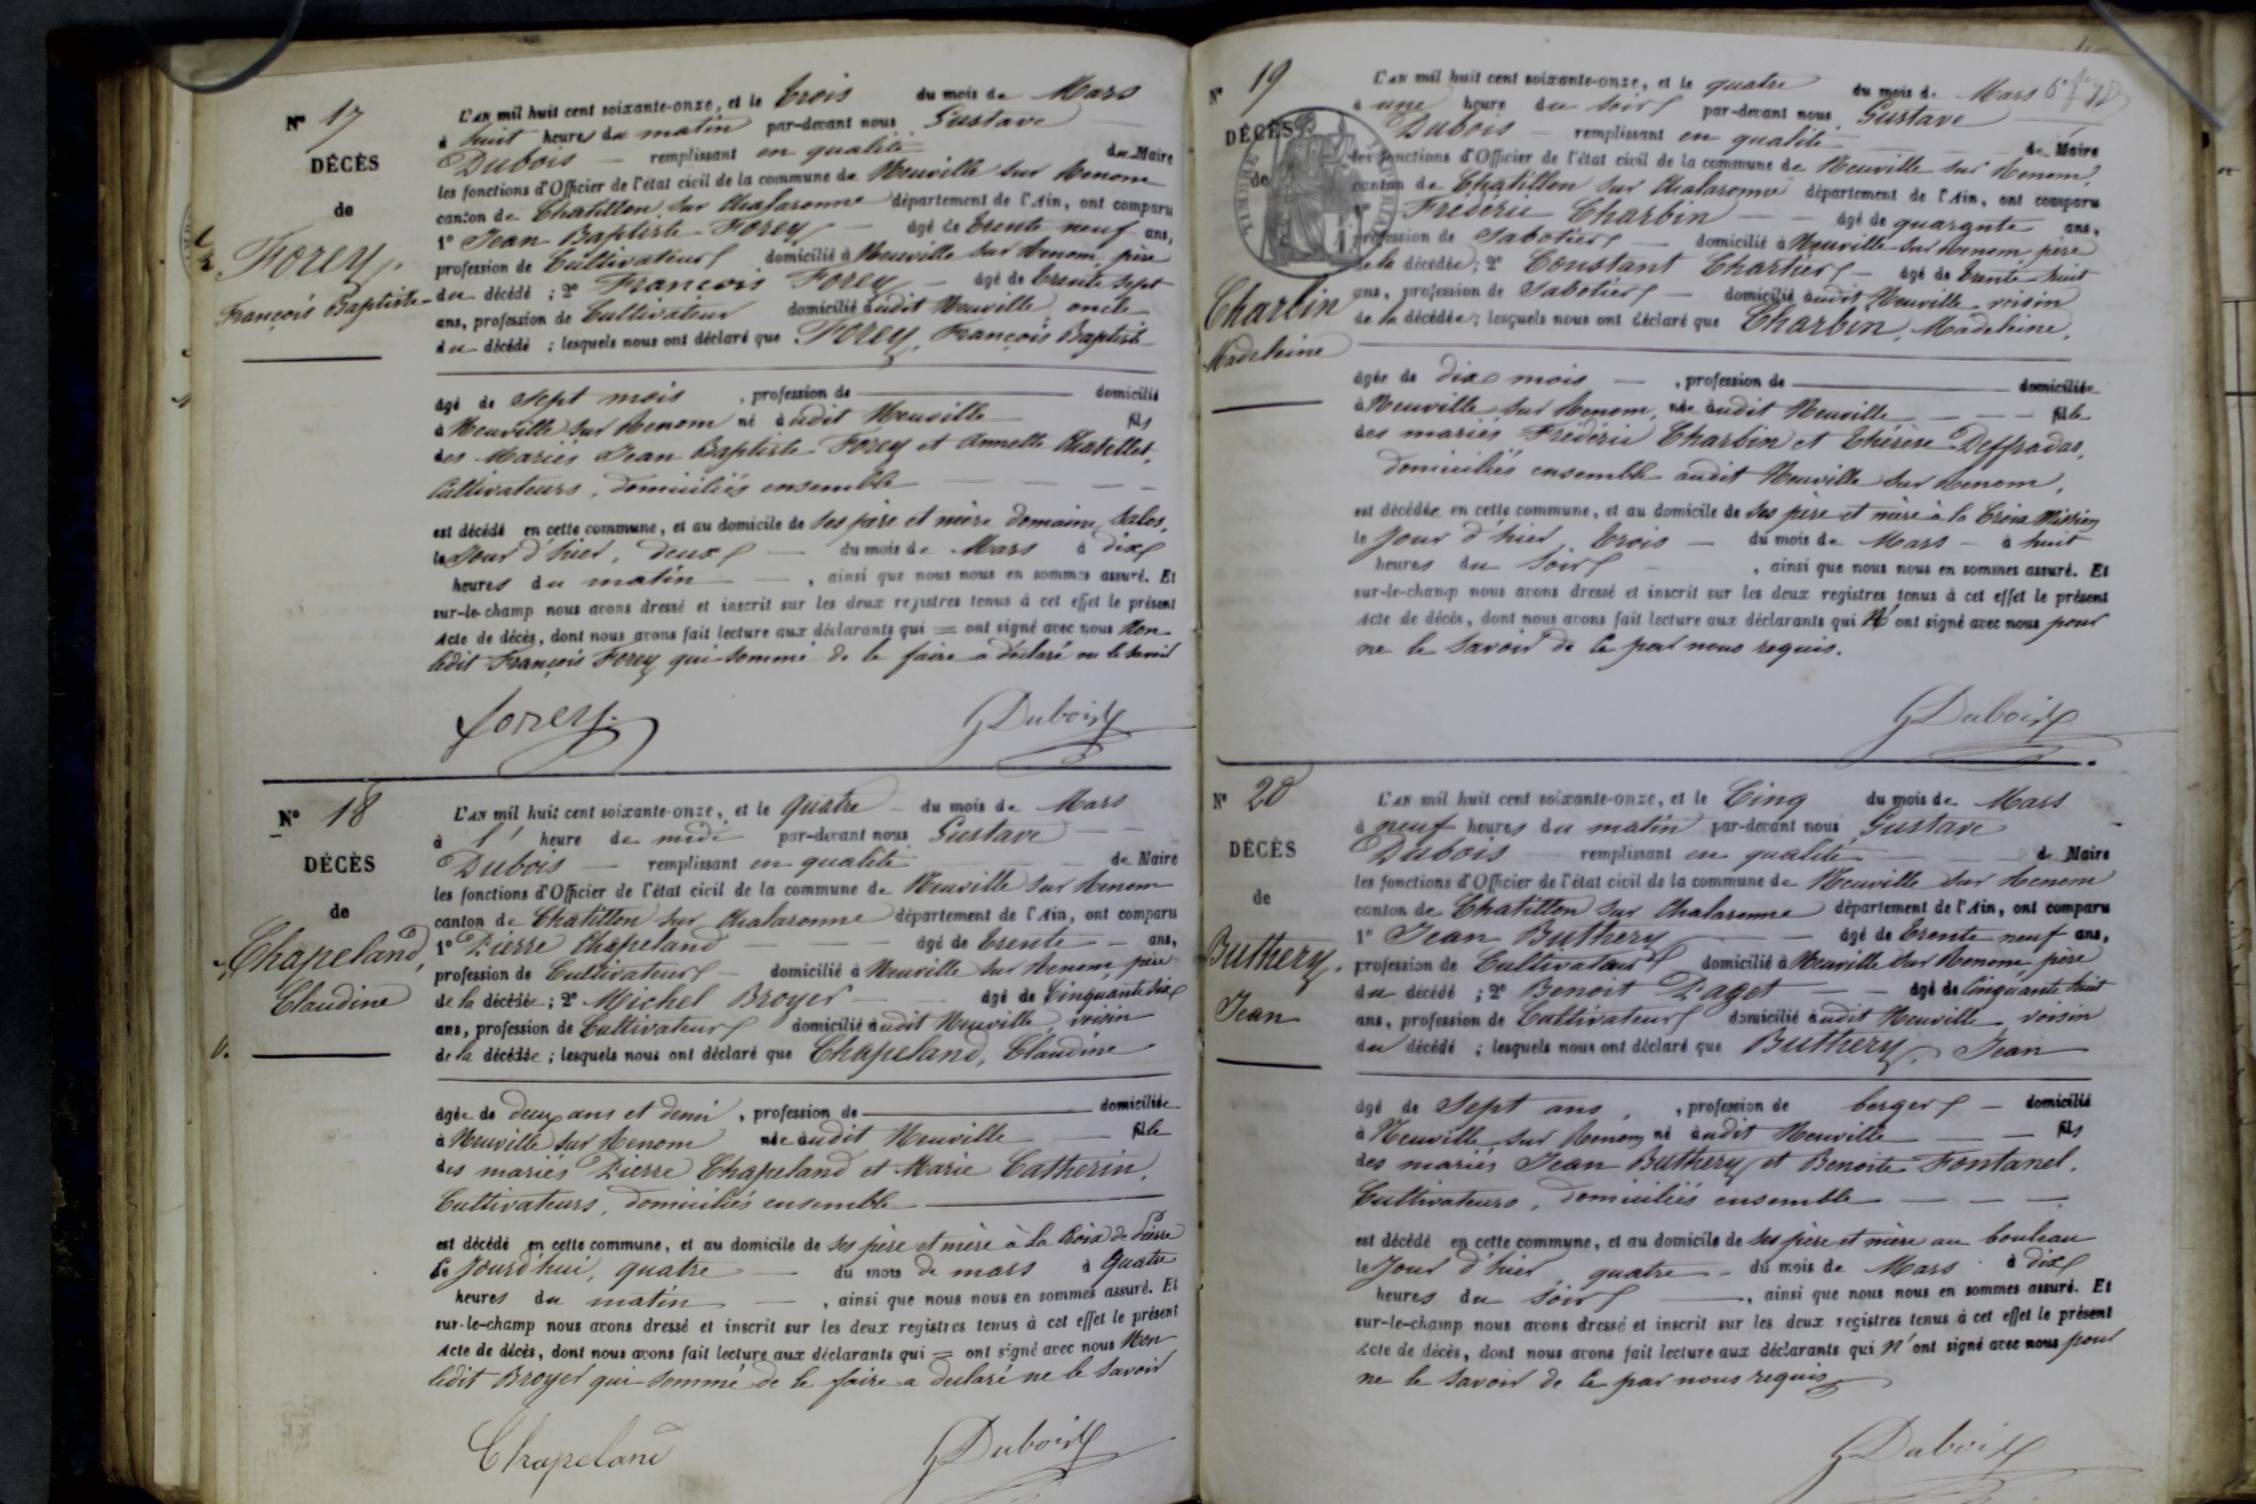 N° 17
DÉCÈS
de
Forey,
François Baptiste
L'AN mil huit cent soixante-onze, et le trois du mois de Mars
à huit heures du matin par-devant nous Gustave
Dubois remplissant en qualité de Maire
les fonctions d'Officier de l'état civil de la commune de Neuville sur Renom
canton de Chatillon sur Chalaronne département de l'Ain, ont comparu
1° Jean Baptiste Forey âgé de trente neuf ans,
profession de Cultivateur domicilié à Neuville sur Renom, père
du décédé ; 2° François Forey âgé de trente sept
ans, profession de Cultivateur domicilié audit Neuville, oncle
du décédé ; lesquels nous ont déclaré que Forey, François Baptiste
âgé de sept mois , profession de domicilié
à Neuville sur Renom né audit Neuville fils
des Mariés Jean Baptiste Forey et Annette Chatellet,
Cultivateurs, domiciliés ensemble
est décédé en cette commune, et au domicile de ses père et mère domaine Sales,
le Jour d'hier, deux du mois de Mars à dix
heures du matin , ainsi que nous nous en sommes assuré. Et
sur-le-champ nous avons dressé et inscrit sur les deux registres tenus à cet effet le présent
Acte de décès, dont nous avons fait lecture aux déclarants qui = ont signé avec nous Non
ledit François Forey qui sommé de le faire a déclaré ne le savoir
Forey
G Dubois
N° 18
DÉCÈS
de
Chapeland,
Claudine
L'AN mil huit cent soixante-onze, et le quatre du mois de Mars
à l' heure de midi par-devant nous Gustave
Dubois remplissant en qualité de Maire
les fonctions d'Officier de l'état civil de la commune de Neuville sur Renom
canton de Chatillon sur Chalaronne département de l'Ain, ont comparu
1° Pierre Chapeland âgé de trente ans,
profession de Cultivateur domicilié à Neuville sur Renom, père
de la décédée ; 2° Michel Broyer âgé de Cinquante dix
ans, profession de Cultivateur domicilié audit Neuville, voisin
de la décédée ; lesquels nous ont déclaré que Chapeland, Claudine
âgée de deux ans et demi , profession de domiciliée
à Neuville sur Renom née audit Neuville fille
des mariés Pierre Chapeland et Marie Catherin,
Cultivateurs, domiciliés ensemble
est décédé en cette commune, et au domicile de ses père et mère à la Croix de Pierre
le Jourd'hui, quatre du mois de mars à Quatre
heures du matin , ainsi que nous nous en sommes assuré. Et
sur-le-champ nous avons dressé et inscrit sur les deux registres tenus à cet effet le présent
Acte de décès, dont nous avons fait lecture aux déclarants qui = ont signé avec nous Non
ledit Broyer qui sommé de le faire a déclaré ne le savoir
Chapeland
G Dubois
N° 19
DÉCÈS
de
Charbin
Madeleine
L'AN mil huit cent soixante-onze, et le quatre du mois de Mars
à une heure du soir par-devant nous Gustave
Dubois remplissant en qualité de Maire
les fonctions d'Officier de l'état civil de la commune de Neuville sur Renom,
canton de Chatillon sur Chalaronne département de l'Ain, ont comparu
1° Frédéric Charbin âgé de quarante ans,
profession de Sabotier domicilié à Neuville sur Renom, père
de la décédée ; 2° Constant Chartier âgé de trente huit
ans, profession de Sabotier domicilié audit Neuville voisin
de la décédée ; lesquels nous ont déclaré que Charbin, Madeleine,
âgée de dix mois , profession de domiciliée
à Neuville sur Renom, née audit Neuville fille
des mariés Frédéric Charbin et Thérèse Deffradas,
domiciliés ensemble audit Neuville sur Renom,
est décédée en cette commune, et au domicile de ses père et mère à la Croix Mission
le Jour d'hier trois du mois de Mars à huit
heures du soir , ainsi que nous nous en sommes assuré. Et
sur-le-champ nous avons dressé et inscrit sur les deux registres tenus à cet effet le présent
Acte de décès, dont nous avons fait lecture aux déclarants qui N' ont signé avec nous pour
ne le savoir de ce par nous requis.
G Dubois
N° 20
DÉCÈS
de
Buthery,
Jean
L'AN mil huit cent soixante-onze, et le Cinq du mois de Mars
à neuf heures du matin par-devant nous Gustave
Dubois remplissant en qualité de Maire
les fonctions d'Officier de l'état civil de la commune de Neuville sur Renom
canton de Chatillon sur Chalaronne département de l'Ain, ont comparu
1° Jean Buthery âgé de trente neuf ans,
profession de Cultivateur domicilié à Neuville sur Renom père
du décédé ; 2° Benoit Paget âgé de Cinquante huit
ans, profession de Cultivateur domicilié audit Neuville voisin
du décédé ; lesquels nous ont déclaré que Buthery, Jean
âgé de Sept ans , profession de berger domicilié
à Neuville sur Renom né audit Neuville fils
des mariés Jean Buthery et Benoite Fontanel,
Cultivateurs, domiciliés ensemble
est décédé en cette commune, et au domicile de ses père et mère au bouleau
le Jour d'hier quatre du mois de Mars à dix
heures du soir , ainsi que nous nous en sommes assuré. Et
sur-le-champ nous avons dressé et inscrit sur les deux registres tenus à cet effet le présent
Acte de décès, dont nous avons fait lecture aux déclarants qui n' ont signé avec nous pour
ne le savoir de ce par nous requis
G Dubois